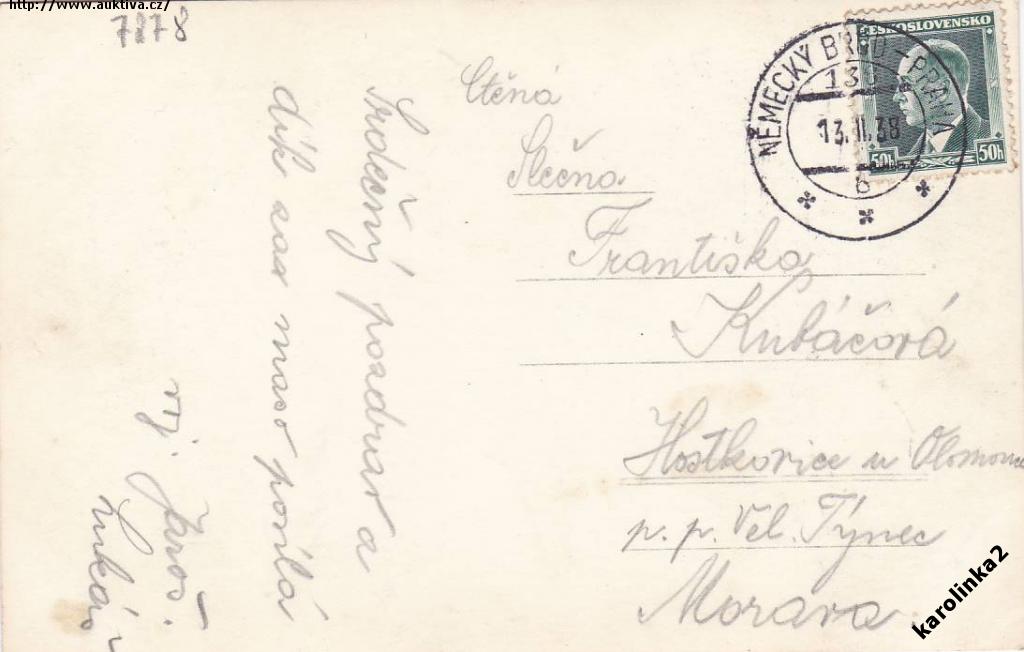 http://www.auktiva.cz/
7878
ČESKOSLOVENSKO
50h 50h
NĚMECKÝ BROD - PRAHA
13.II.38
6
Ctěná
Slečna
Františka
Kubáčová
Hostkovice u Olomouce
p. p. Vel. Týnec
Morava
Srdečný pozdrav a
dík za maso posílá
Jaroš.
karolinka2